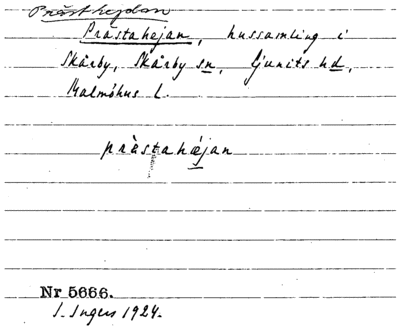 Prästhejdan
Prästahejan, hussamling i
Skårby, Skårby sn, Ljunits hd,
Malmöhus l.
prästahæjan
Nr 5666.
I. Ingers 1924.